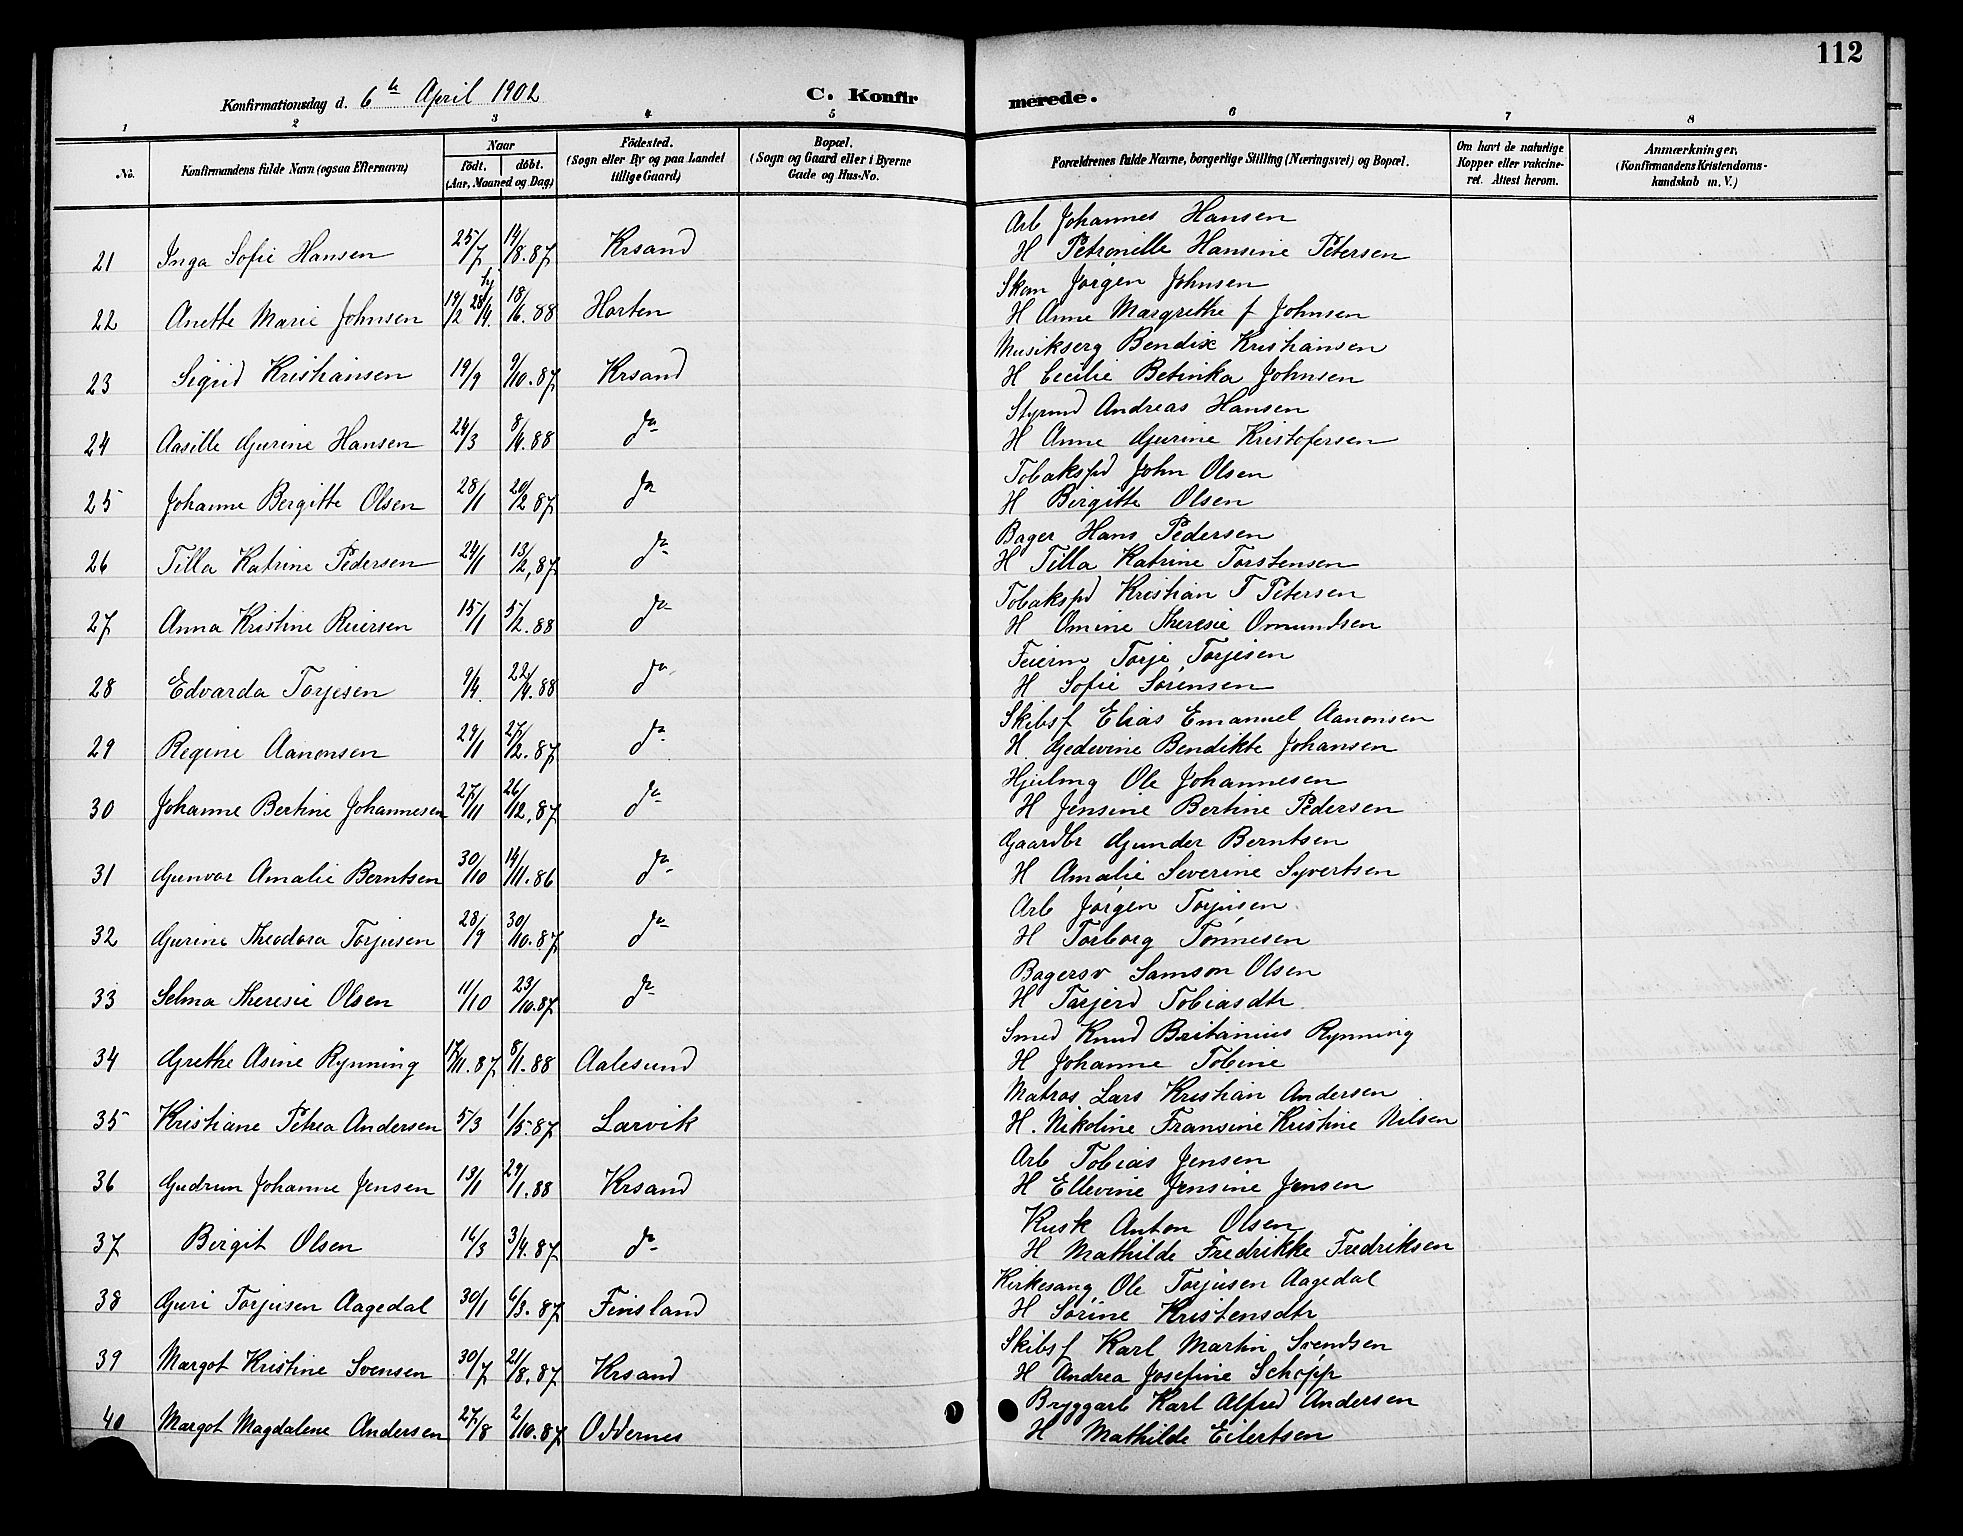 112
Konfirmationsdag d. 6te April 1902 C. Konfir merede.
1 2 3 4 5 6 7 8
No. Konfirmandens fulde Navn (ogsaa Efternavn) Naar født, døbt. (Aar, Maaned og Dag) Fødested. (Sogn eller By og paa Landet tillige Gaard) Bopæl. (Sogn og Gaard eller i Byerne Gade og Hus-No. Forældrenes fulde Navne, borgerlige Stilling (Næringsvei) og Bopæl. Om havt de naturlige Kopper eller vakcineret. Attest herom. Anmærkninger, (Konfirmandens Kristendomskundskab m. V.)
Arb Johannes Hansen
21 Inga Sofie Hansen 25/7 14/8.87 Krsand H Petronille Hansine Petersen
Skom Jørgen Johnsen
22 Anette Marie Johnsen 19/2 hj 28/4. 18/6.88 Horten H Anne Margrethe f Johnsen
Musikserg Bendix Kristiansen
23 Sigrid Kristiansen 19/9 9/10.87 Krsand H Cecilie Betinka Johnsen
Styrmd Andreas Hansen
24 Aasille Gurine Hansen 24/3 8/4.88 do H Anne Gurine Kristofersen
Tobakspd John Olsen
25 Johanne Bergitte Olsen 28/1 20/2 87 do H Birgitte Olsen
Bager Hans Pedersen
26 Tilla Katrine Pedersen 24/1 13/2,87 do H Tilla Katrine Torstensen
Tobakspd Kristian T Petersen
27 Anna Kristine Reiersen 15/1 5/2.88 do H Omine Theresie Omundsen
Feierm Torje Torjesen
28 Edvarda Torjesen 9/4. 22/4.88 do H Sofie Sørensen
Skibsf Elias Emanuel Aanonsen
29 Regine Aanonsen 29/1 27/2.87 do H Gedevine Bendikte Johansen
Hjulmg Ole Johannesen
30 Johanne Bertine Johannesen 27/11 26/12,87 do H Jensine Bertine Pedersen
Gaardbr Gunder Berntsen
31 Gunvor Amalie Berntsen 30/10 14/11.86 do H Amalie Severine Syvertsen
Arb Jørgen Torjusen
32 Gurine Theodora Torjusen 28/9 30/10.87 do H Torborg Tønnesen
Bagersv Samson Olsen
33 Selma Theresie Olsen 11/10 23/10.87 do H Tarjerd Tobiasdtr
Smed Knud Britanius Rynning
34 Grethe Asine Rynning 17/11.87 8/1.88 Aalesund H Johanne Tobine
Matros Lars Kristian Andersen
35 Kristiane Petrea Andersen 5/3 1/5.87 Larvik H. Nikoline Fransine Kristine Nilsen
Arb Tobias Jensen
36 Gudrun Johanne Jensen 13/1 29/1.88 Krsand H Ellevine Jensine Jensen
Kusk Anton Olsen
37 Birgit Olsen 16/3 3/4.87 do H Mathilde Fredrikke Fredriksen
Kirkesang Ole Torjusen Aagedal
38 Guri Torjusen Aagedal 30/1 6/3.87 Finsland H Sørine Kristensdtr
Skibsf Karl Martin Svendsen
39 Margot Kristine Svensen 30/7 21/8.87 Krsand H Andrea Josefine Schøpp
Bryggarb Karl Alfred Andersen
40 Margot Magdalene Andersen 27/8 2/10.87 Oddernes H Mathilde Eilertsen